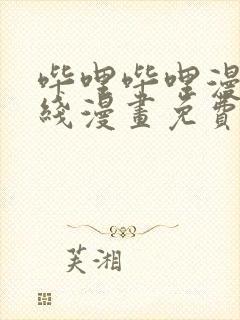 哔哩哔哩漫
线漫畫免費
芙湘